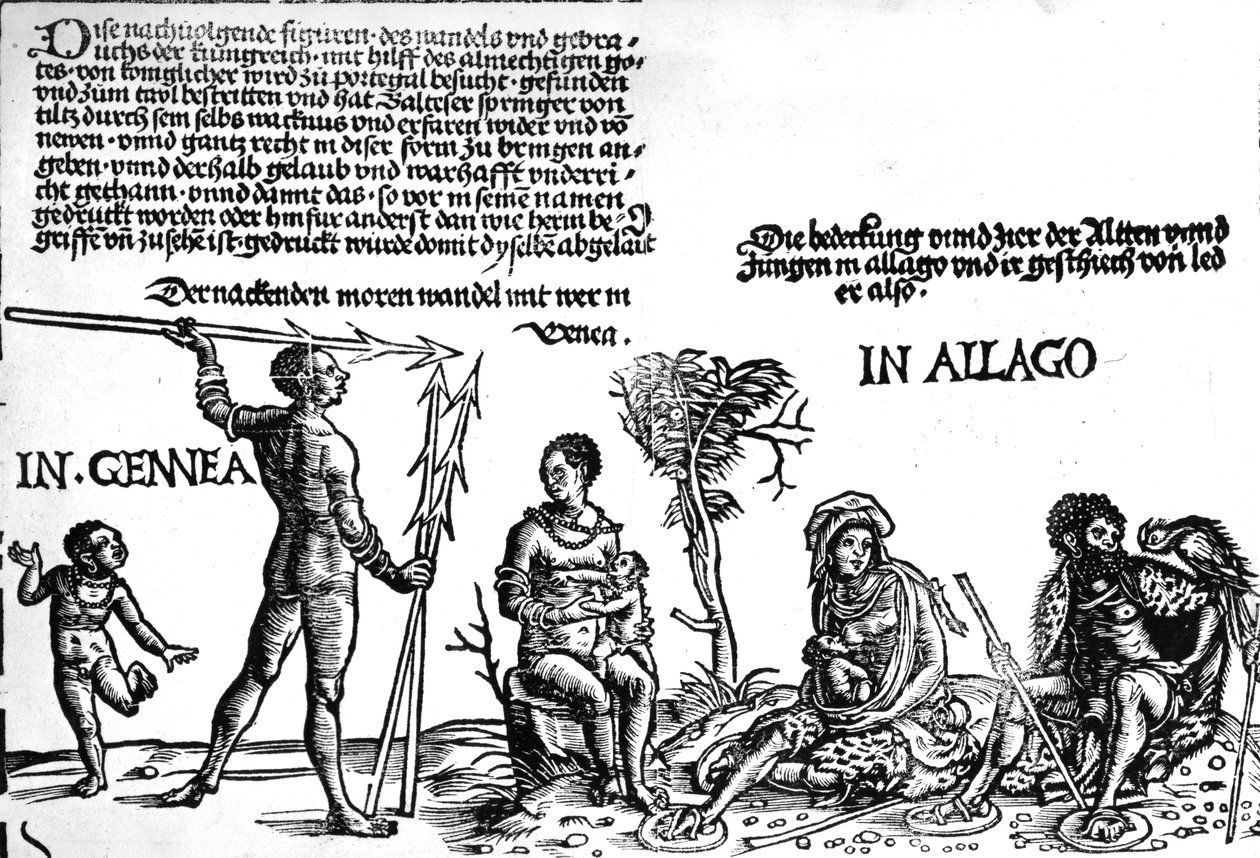 Dise nachuolgende figuren·des wandels vnd gebra-
uchs der kunigreich·mit hilff des almechtigen go-
tes·von koniglicher wird zu portegal besucht·gefunden
vnd zum tayl bestritten vnd hat Balteser springer von
tiltz durch sein selbs wacknus vnd erfaren wider vnd vō
newen·vnnd gantz recht in diser form zu bringen an-
geben·vnnd derhalb gelaub vnd warhafft vnderri-
cht gethann·vnnd damit das·so vor in seinē namen
gedruckt worden oder hinfur anderst dan wie herin be-
griffē vn̄ zusehē ist·gedruckt wurde domit dyselbē abgelaut
Der nackenden moren wandel mit wer in
Genea.
IN·GENNEA
Die bedeckung vnnd zier der Altten vnnd
Jungen in allago vnd ir geschiech von led
er also.
IN ALLAGO